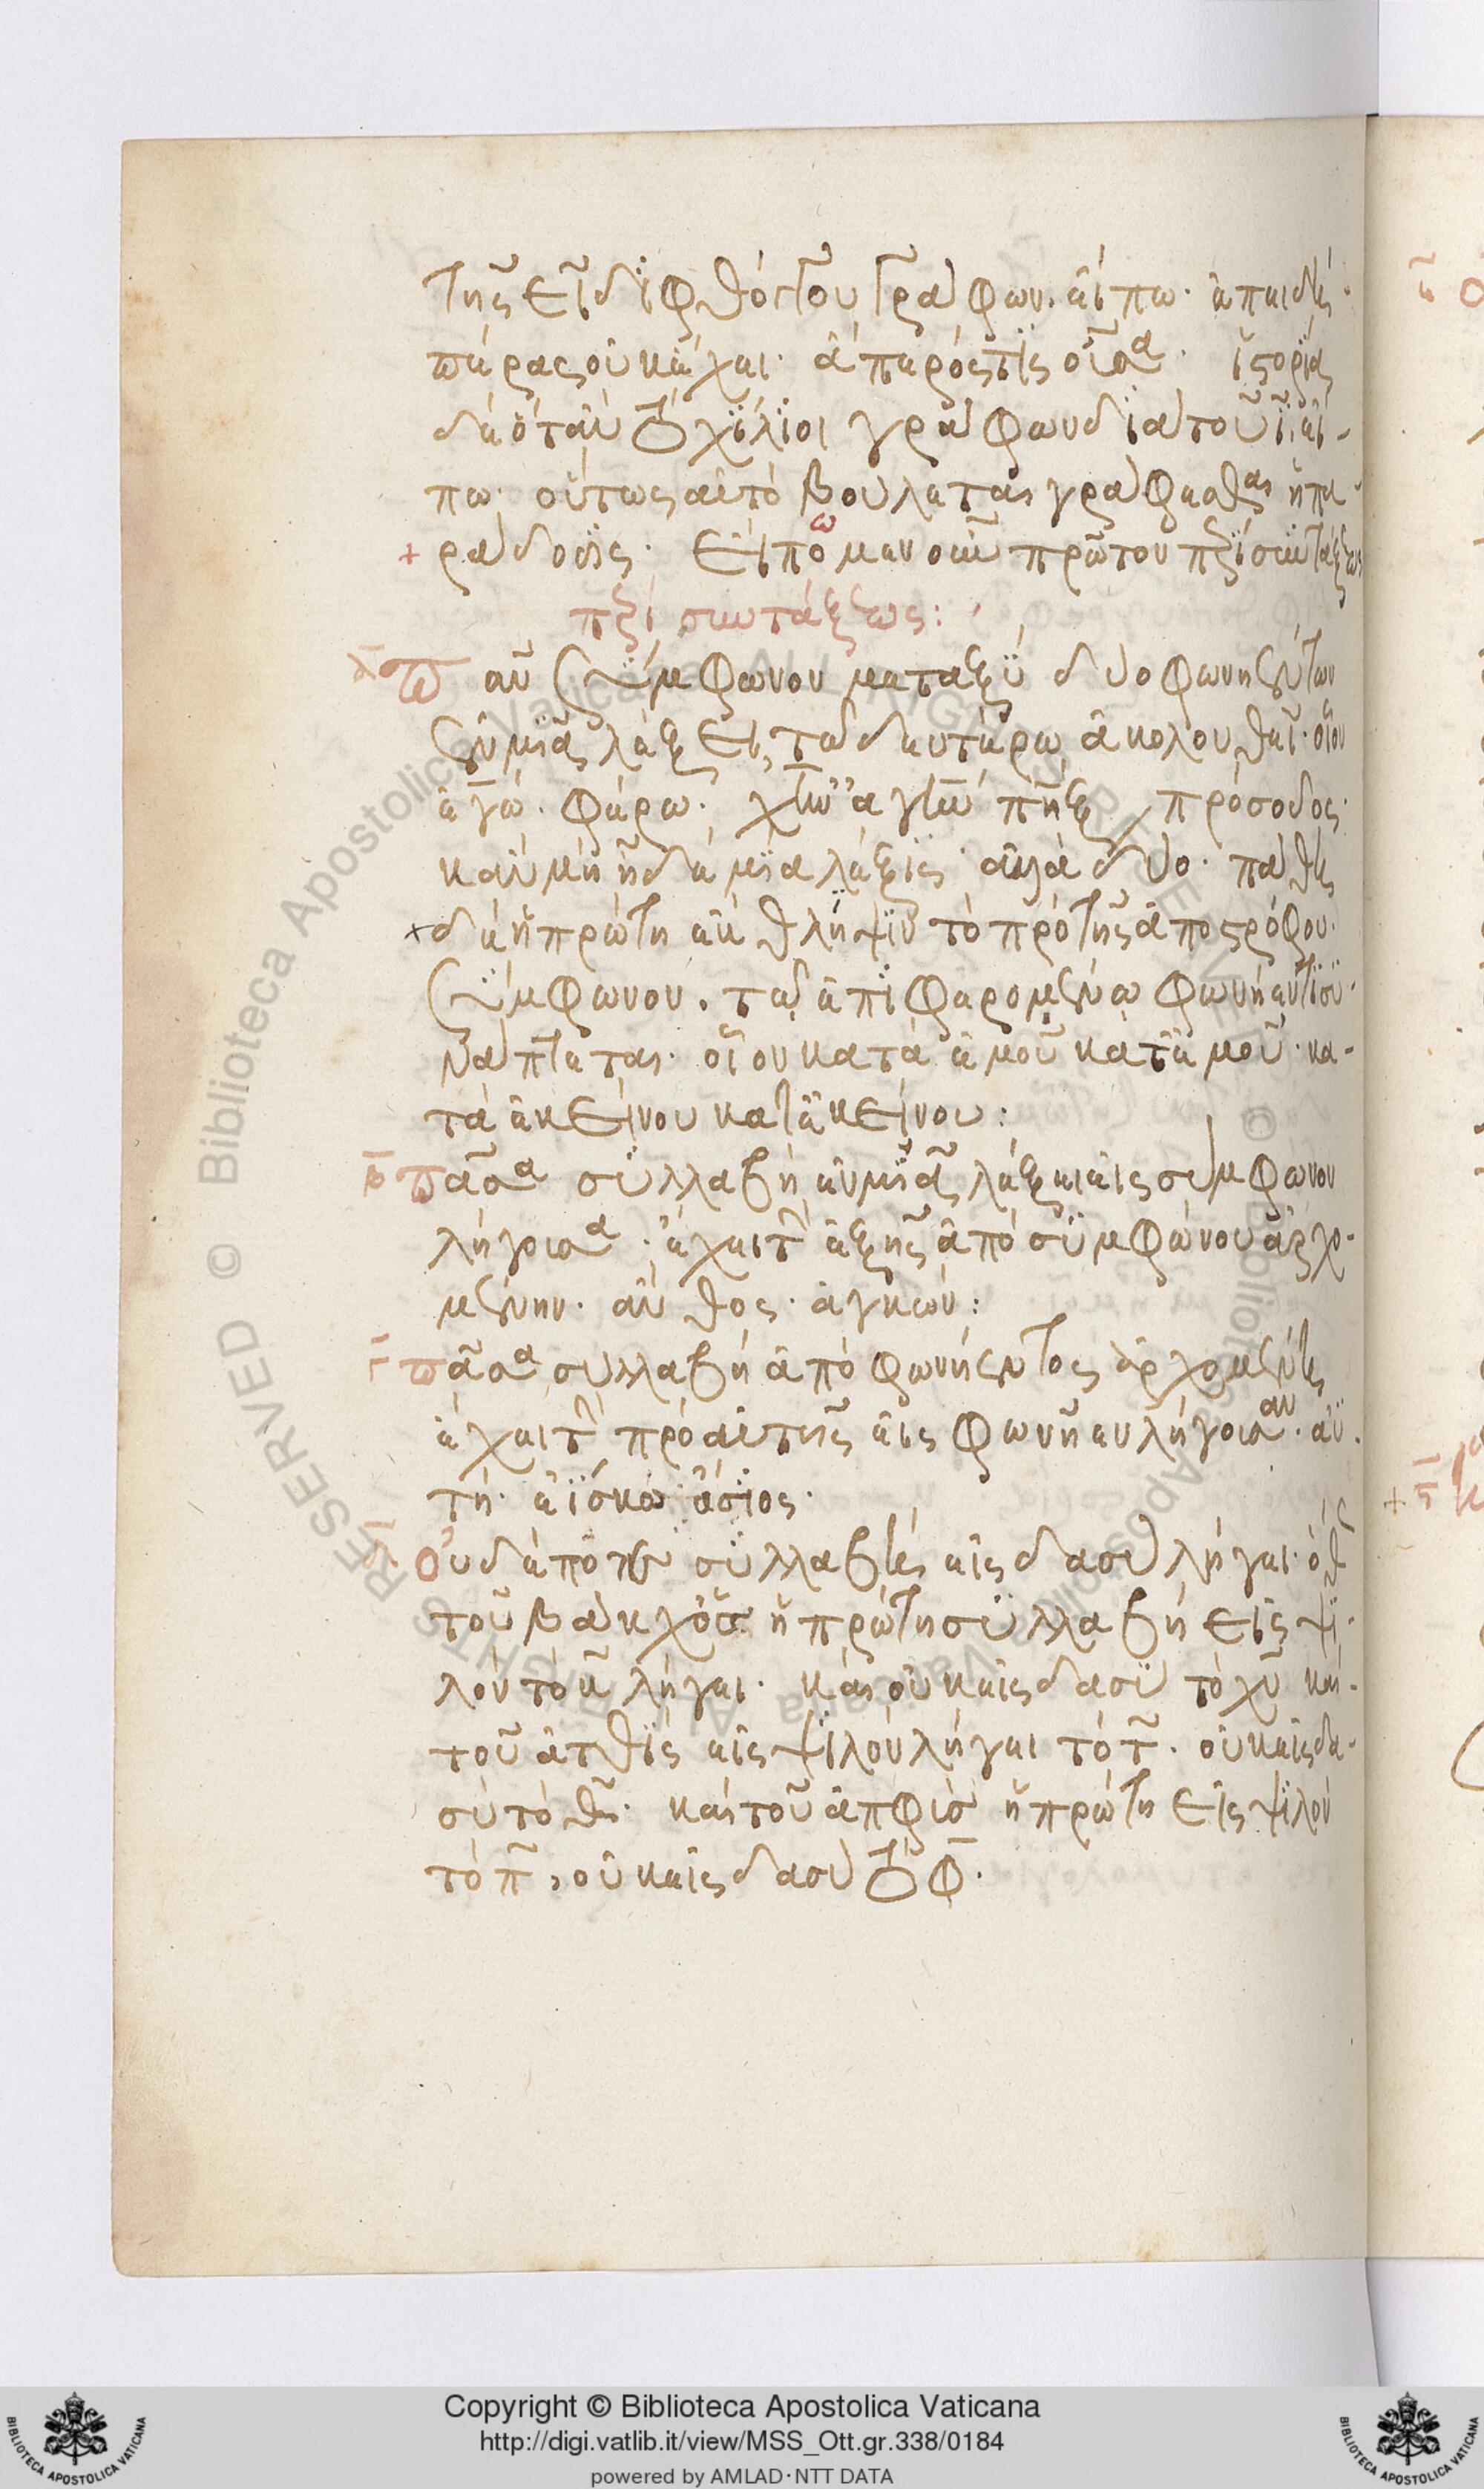 τῆς ει διφθόγγου γράφων. εἴπω. ἐπειδὴ
πέρας οὐκ ἔχει. ἄπειρός τις οὖσα. ἱστορίας
δὲ ὅταν τὸ χίλιοι γράφων διὰ τοῦ ῑ, εἴ-
πω. οὕτως αὐτὸ βούλεται γράφεσθαι ἡ πα-
+ ράδοσις. Εἴπομεν οὖν πρῶτον περὶ συντάξεως
περὶ συντάξεως:
ᾱ πᾶν σύμφωνον μεταξὺ δύο φωνηέντων
ἐν μιᾷ λέξει, τῷ δευτέρῳ ἀκολουθεῖ. οἷον
ἐγώ. φέρω. πρόσοδος.
κἂν μὴ ᾖ δὲ μία λέξις ἀλλὰ δύο. πάθῃ
+ δὲ ἡ πρώτη ἔκθλιψιν τὸ πρὸ τῆς ἀποστρόφου
σύμφωνον. τῷ ἐπιφερομένῳ φωνήεντι συ-
νάπτεται. οἷον κατὰ ἐμοῦ κατ' ἐμοῦ. κα-
τὰ ἐκείνου κατ' ἐκείνου:
β̄ πᾶσα συλλαβὴ ἐν μιᾷ λέξει εἰς σύμφωνον
λήγουσα. ἔχει τὴν ἑξῆς ἀπὸ συμφώνου ἀρχο-
μένην. ἄνθος. ἀγκών:
γ̄ πᾶσα συλλαβὴ ἀπὸ φωνήεντος ἀρχομένη
ἔχει τὴν πρὸ αὐτῆς εἰς φωνῆεν λήγουσαν. ἀϋ-
τή. ἐΐσκω ἄϊος.
δ̄ Οὐδέποτε συλλαβὴ εἰς δασὺ λήγει. ὅθεν
τοῦ βάκχος ἡ πρώτη συλλαβὴ εἰς ψι-
λὸν τὸ κ̄ λήγει. καὶ οὐκ εἰς δασὺ τὸ χ̄ καὶ
τοῦ ἀτθὶς εἰς ψιλὸν λήγει τὸ τ̄. οὐκ εἰς δα-
σὺ τὸ θ̄. καὶ τοῦ ἀπφὺς ἡ πρώτη εἰς ψιλὸν
τὸ π̄, οὐκ εἰς δασὺ τὸ φ̄.
Copyright © Biblioteca Apostolica Vaticana
http://digi.vatlib.it/view/MSS_Ott.gr.338/0184
powered by AMLAD·NTT DATA